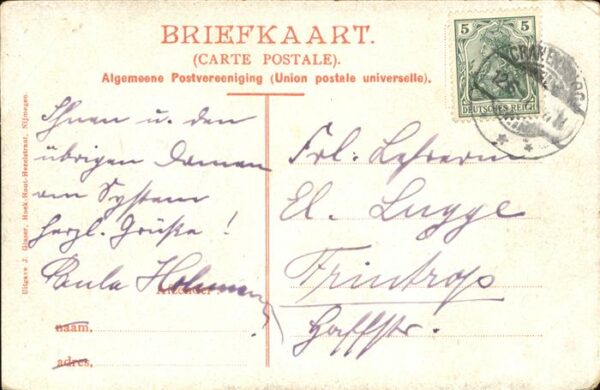 BRIEFKAART.
(CARTE POSTALE).
Algemeene Postvereeniging (Union postale universelle).
5 5
DEUTSCHES REICH
Uitgave J. Glaser, Hoek Hout-Hezelstraat, Nijmegen.
Ihnen u. den
übrigen Damen
am System
herzl. Grüße!
Paula
naam.
adres.
Frl. Lehrerin
El. Lugge
Frintrop
Haffstr.